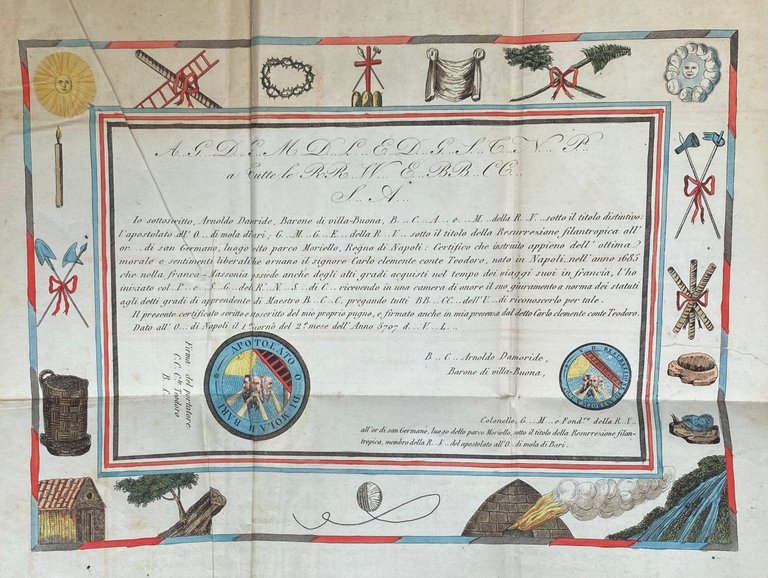 A.. G.. D.. L.. M.. D.. L.. E.. D.. G.. S.. C.. N.. P..
a Tutte le RR.. W.. E.. BB.. CC..
S.. A..
Io sottoscritto, Arnoldo Damride, Barone di villa-Buona, B... C...A... e... M... della R...V... sotto il titolo distintivo:
l'apostolato all'O... di mola di bari; G... M...G...E... della R...V... sotto il titolo della Resurrezione filantropica all'
or... di san Germano, luogo etto parco Moriello, Regno di Napoli: Certifico che instruito appieno dell'ottima
morale e sentimenti liberali che ornano il signore Carlo clemente conte Teodoro, nato in Napoli, nell'anno 1685
che nella franca-Massonia ssiede anche degli alti gradi acquisti nel tempo dei viaggi suoi in francia, l'ho
iniziato col... P... e... S... G... del R...N...S... di C... ricevendo in una camera di onore il suo giuramento a norma dei statuti
agli detti gradi di apprendente di Maestro B...C...C, pregando tutti BB...CC... dell'U... di riconoscerlo per tale.
Il presente certificato scritto e sottoscritto del mio proprio pugno, e firmato anche in mia presenza dal detto Carlo clemente conte Teodoro.
Dato all'O... di Napoli il 1º giorno del 2º mese dell'Anno 5707 d... V... L...
Firma del portatore
C. C. Cte Teodoro
B... L...
APOTOLATO O. DI MOLA DI BARI
B... C... Arnoldo Damoride,
Barone di villa-Buona,
Colonello, G... M... e Fondre della R...V...
all'or di san Germano, luogo detto parco Moriello, sotto il titolo della Resurrezione filan-
tropica, membro della R...V... del apostolato all'O... di mola di Bari